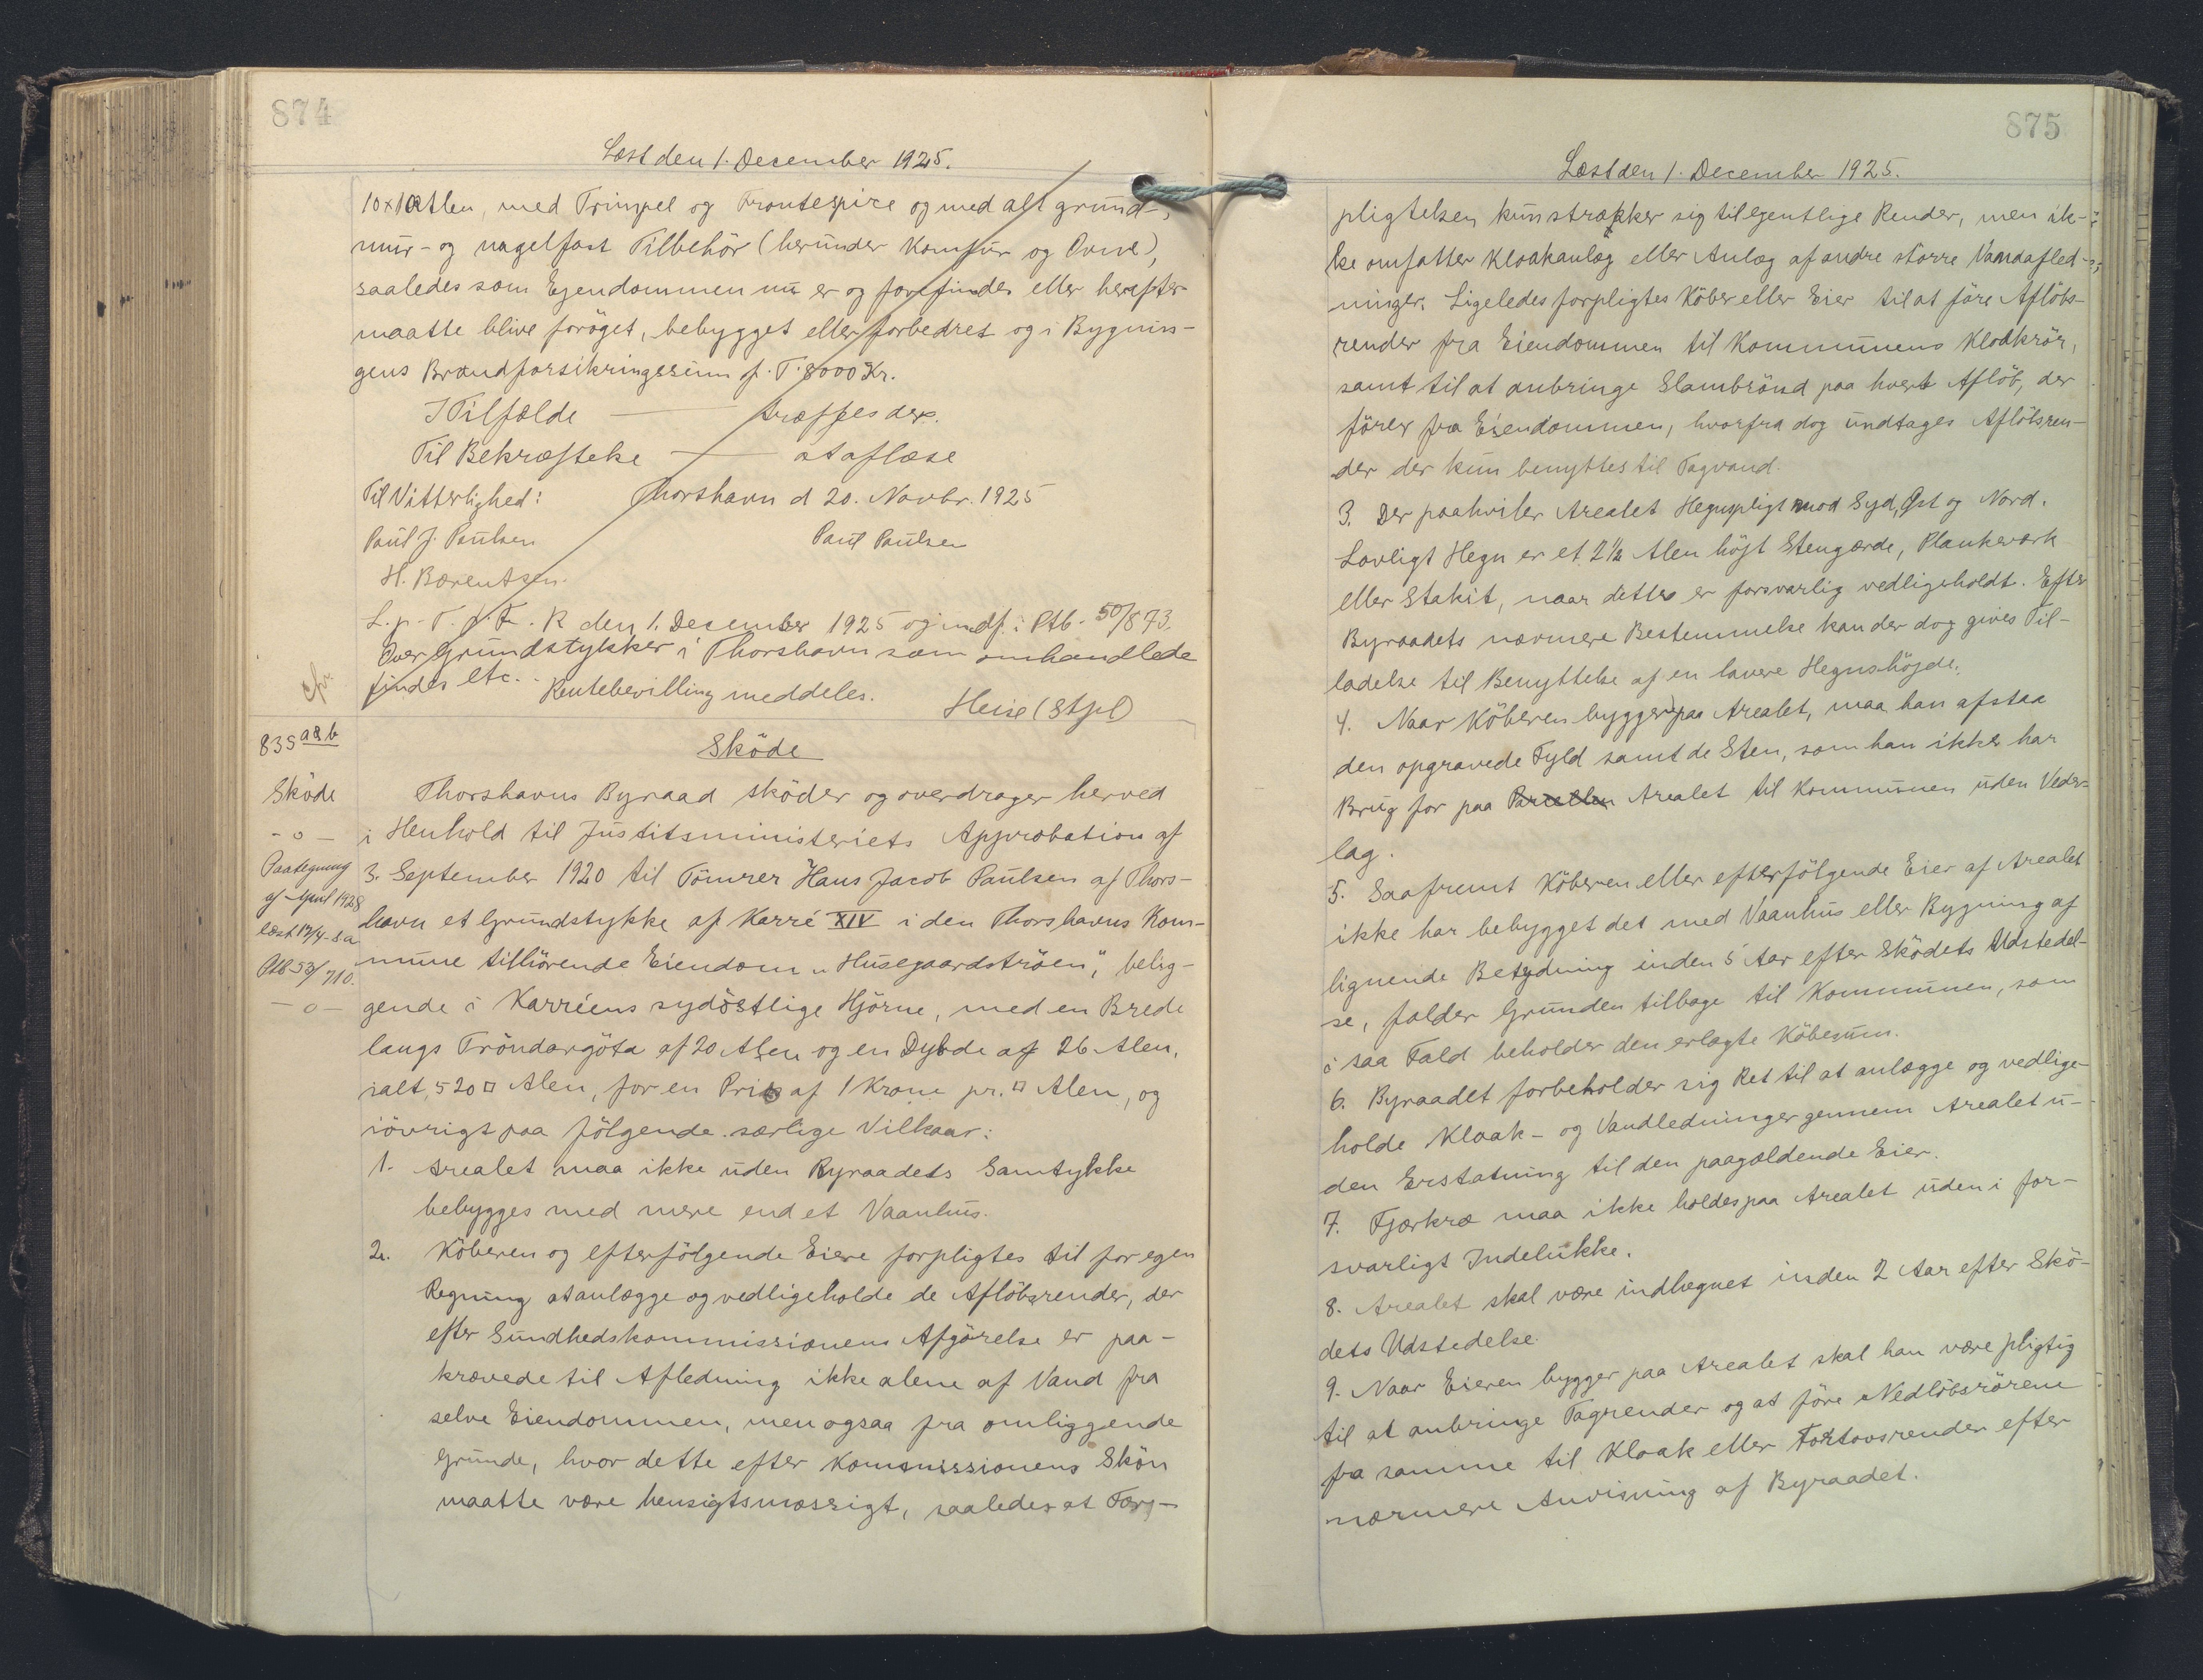 874
Læst den 1. December 1925.
10x10 Alen, med Trimpel og Frontespice og med alt grund-,
mur- og nagelfast Tilbehör (herunder Komfur og Ovne),
saaledes som Ejendommen nu er og forefindes eller herefter
maatte blive foröget, bebygget eller forbedret og i Bygnin-
gens Brandforsikringssum p. T. 8000 Kr.
I Tilfælde — træffes der.
Til Bekræftelse — at aflæse
Til Vitterlighed: Thorshavn d 20. Novbr. 1925
Paul J. Paulsen Paul Paulsen
H. Bærentsen.
L. p. T. f. F. R den 1. December 1925 og indf. i Ptb. 50/873.
Over Grundstykker i Thorshavn som omhandlede
findes etc. Rentebevilling meddeles.
Heise (Stpl)
835 a&b
Sköde
Sköde
Thorshavns Byraad sköder og overdrager herved
-o-
i Henhold til Justitsministeriets Approbation af
Paategning
3. September 1920 til Tömrer Hans Jacob Paulsen af Thors-
af April 1928
havn et Grundstykke af Karré XIV i den Thorshavns Kom-
læst 17/4-s.a
mune tilhörende Eiendom „Husegaardströen", belig-
Ptb 53/710.
gende i Karréens sydöstlige Hjörne, med en Brede
-o-
langs Tröndargöta af 20 Alen og en Dybde af 26 Alen,
ialt 520 □ Alen, for en Pris af 1 Krone pr. □ Alen, og
iövrigt paa fölgende særlige Vilkaar:
1. Arealet maa ikke uden Byraadets Samtykke
bebygges med mere end et Vaanhus.
2. Köberen og efterfölgende Eiere forpligtes til for egen
Regning at anlægge og vedligeholde de Aflöbsrender, der
efter Sundhedskommissionens Afgörelse er paa-
krævede til Afledning ikke alene af Vand fra
selve Eiendommen, men ogsaa fra omliggende
Grunde, hvor dette efter Kommissionens Skön
maatte være hensigtsmæssigt, saaledes at For-
875
Læst den 1. December 1925.
pligtelsen kun strækker sig til egentlige Render, men ik-
ke omfatter Kloakanlæg eller Anlæg af andre större Vandafled-
ninger. Ligeledes forpligtes Köber eller Eier til at före Aflöbs-
render fra Eiendommen til Kommunens Kloakrör,
samt til at anbringe Slambrönd paa hvert Aflöb, der
förer fra Eiendommen, hvorfra dog undtages Aflöbsren-
der der kun benyttes til Tagvand.
3. Der paahviler Arealet Hegnspligt mod Syd, Øst og Nord.
Lovligt Hegn er et 2½ Alen höjt Stengærde, Plankeværk
eller Stakit, naar dette er forsvarlig vedligeholdt. Efter
Byraadets nærmere Bestemmelse kan der dog gives Til-
ladelse til Benyttelse af en lavere Hegnshöjde.
4. Naar Köberen bygger paa Arealet, maa han afstaa
den opgravede Fyld samt de Sten, som han ikke har
Brug for paa Parcellen Arealet til Kommunen uden Veder-
lag.
5. Saafremt Köberen eller efterfölgende Eier af Arealet
ikke har bebygget det med Vaanhus eller Bygning af
lignende Betydning inden 5 Aar efter Sködets Udstedel-
se, falder Grunden tilbage til Kommunen, som
i saa Fald beholder den erlagte Köbesum.
6. Byraadet forbeholder sig Ret til at anlægge og vedlige-
holde Kloak- og Vandledninger gennem Arealet u-
den Erstatning til den paagældende Eier.
7. Fjerkræ maa ikke holdes paa Arealet uden i for-
svarligt Indelukke.
8. Arealet skal være indhegnet inden 2 Aar efter Skö-
dets Udstedelse.
9. Naar Eieren bygger paa Arealet skal han være pligtig
til at anbringe Tagrender og at före Nedlöbsrörene
fra samme til Kloak eller Fortovsrender efter
nærmere Anvisning af Byraadet.